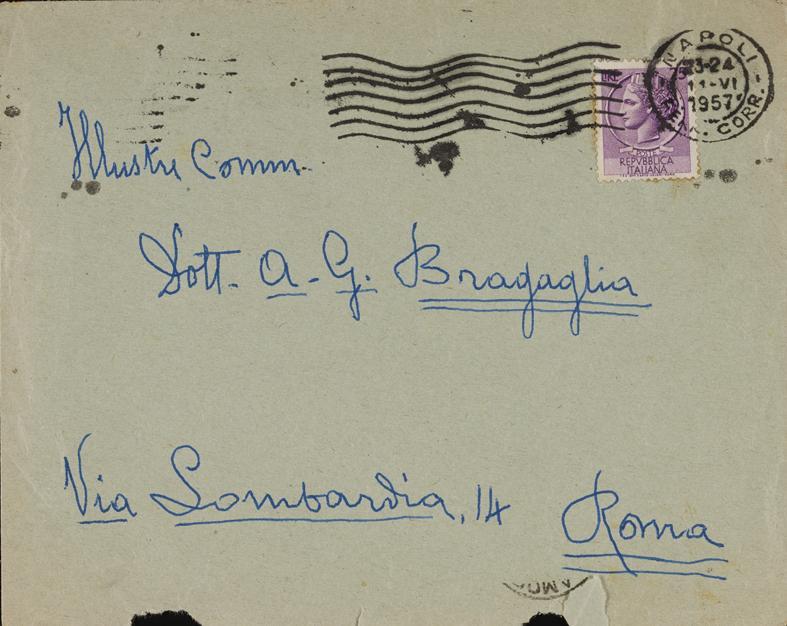 NAPOLI
23-24
11-VI
1957
FERR. CORR.
LIRE
POSTE
REPVBBLICA
ITALIANA
Illustre Comm.
Dott. A. G. Bragaglia
Via Lombardia, 14 Roma
ROMA